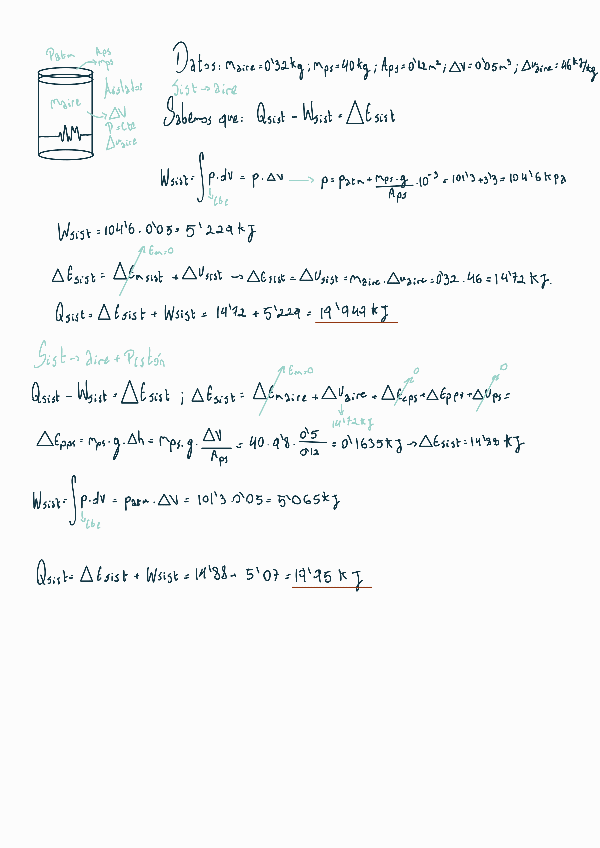 Patm Aps
mps
Aislados
maire
ΔV
P=cte
Δuaire
Datos: maire=0'32kg; mps=40kg; Aps=0'12m²; ΔV=0'05m³; Δuaire=46kJ/kg
Sist→aire
Sabemos que: Qsist - Wsist = ΔEsist
Wsist = ∫p·dV = p·ΔV → p = patm + mps·g/Aps ·10⁻³ = 101'3+3'3 = 104'6 kPa
cte
Wsist = 104'6·0'05 = 5'229 kJ
Em=0
ΔEsist = ΔEmsist + ΔUsist → ΔEsist = ΔUsist = maire·Δuaire = 0'32·46 = 14'72 kJ.
Qsist = ΔEsist + Wsist = 14'72 + 5'229 = 19'949 kJ
Sist → aire + Pistón
Em=0 0 0
Qsist - Wsist = ΔEsist ; ΔEsist = ΔEmaire + ΔUaire + ΔEcps + ΔEpps + ΔUps =
14'72kJ
ΔEpps = mps·g·Δh = mps·g·ΔV/Aps = 40·9'8·0'5/0'12 = 0'1635kJ → ΔEsist = 14'88 kJ
Wsist = ∫p·dV = patm·ΔV = 101'3·0'05 = 5'065kJ
cte
Qsist = ΔEsist + Wsist = 14'88 + 5'07 = 19'95 kJ